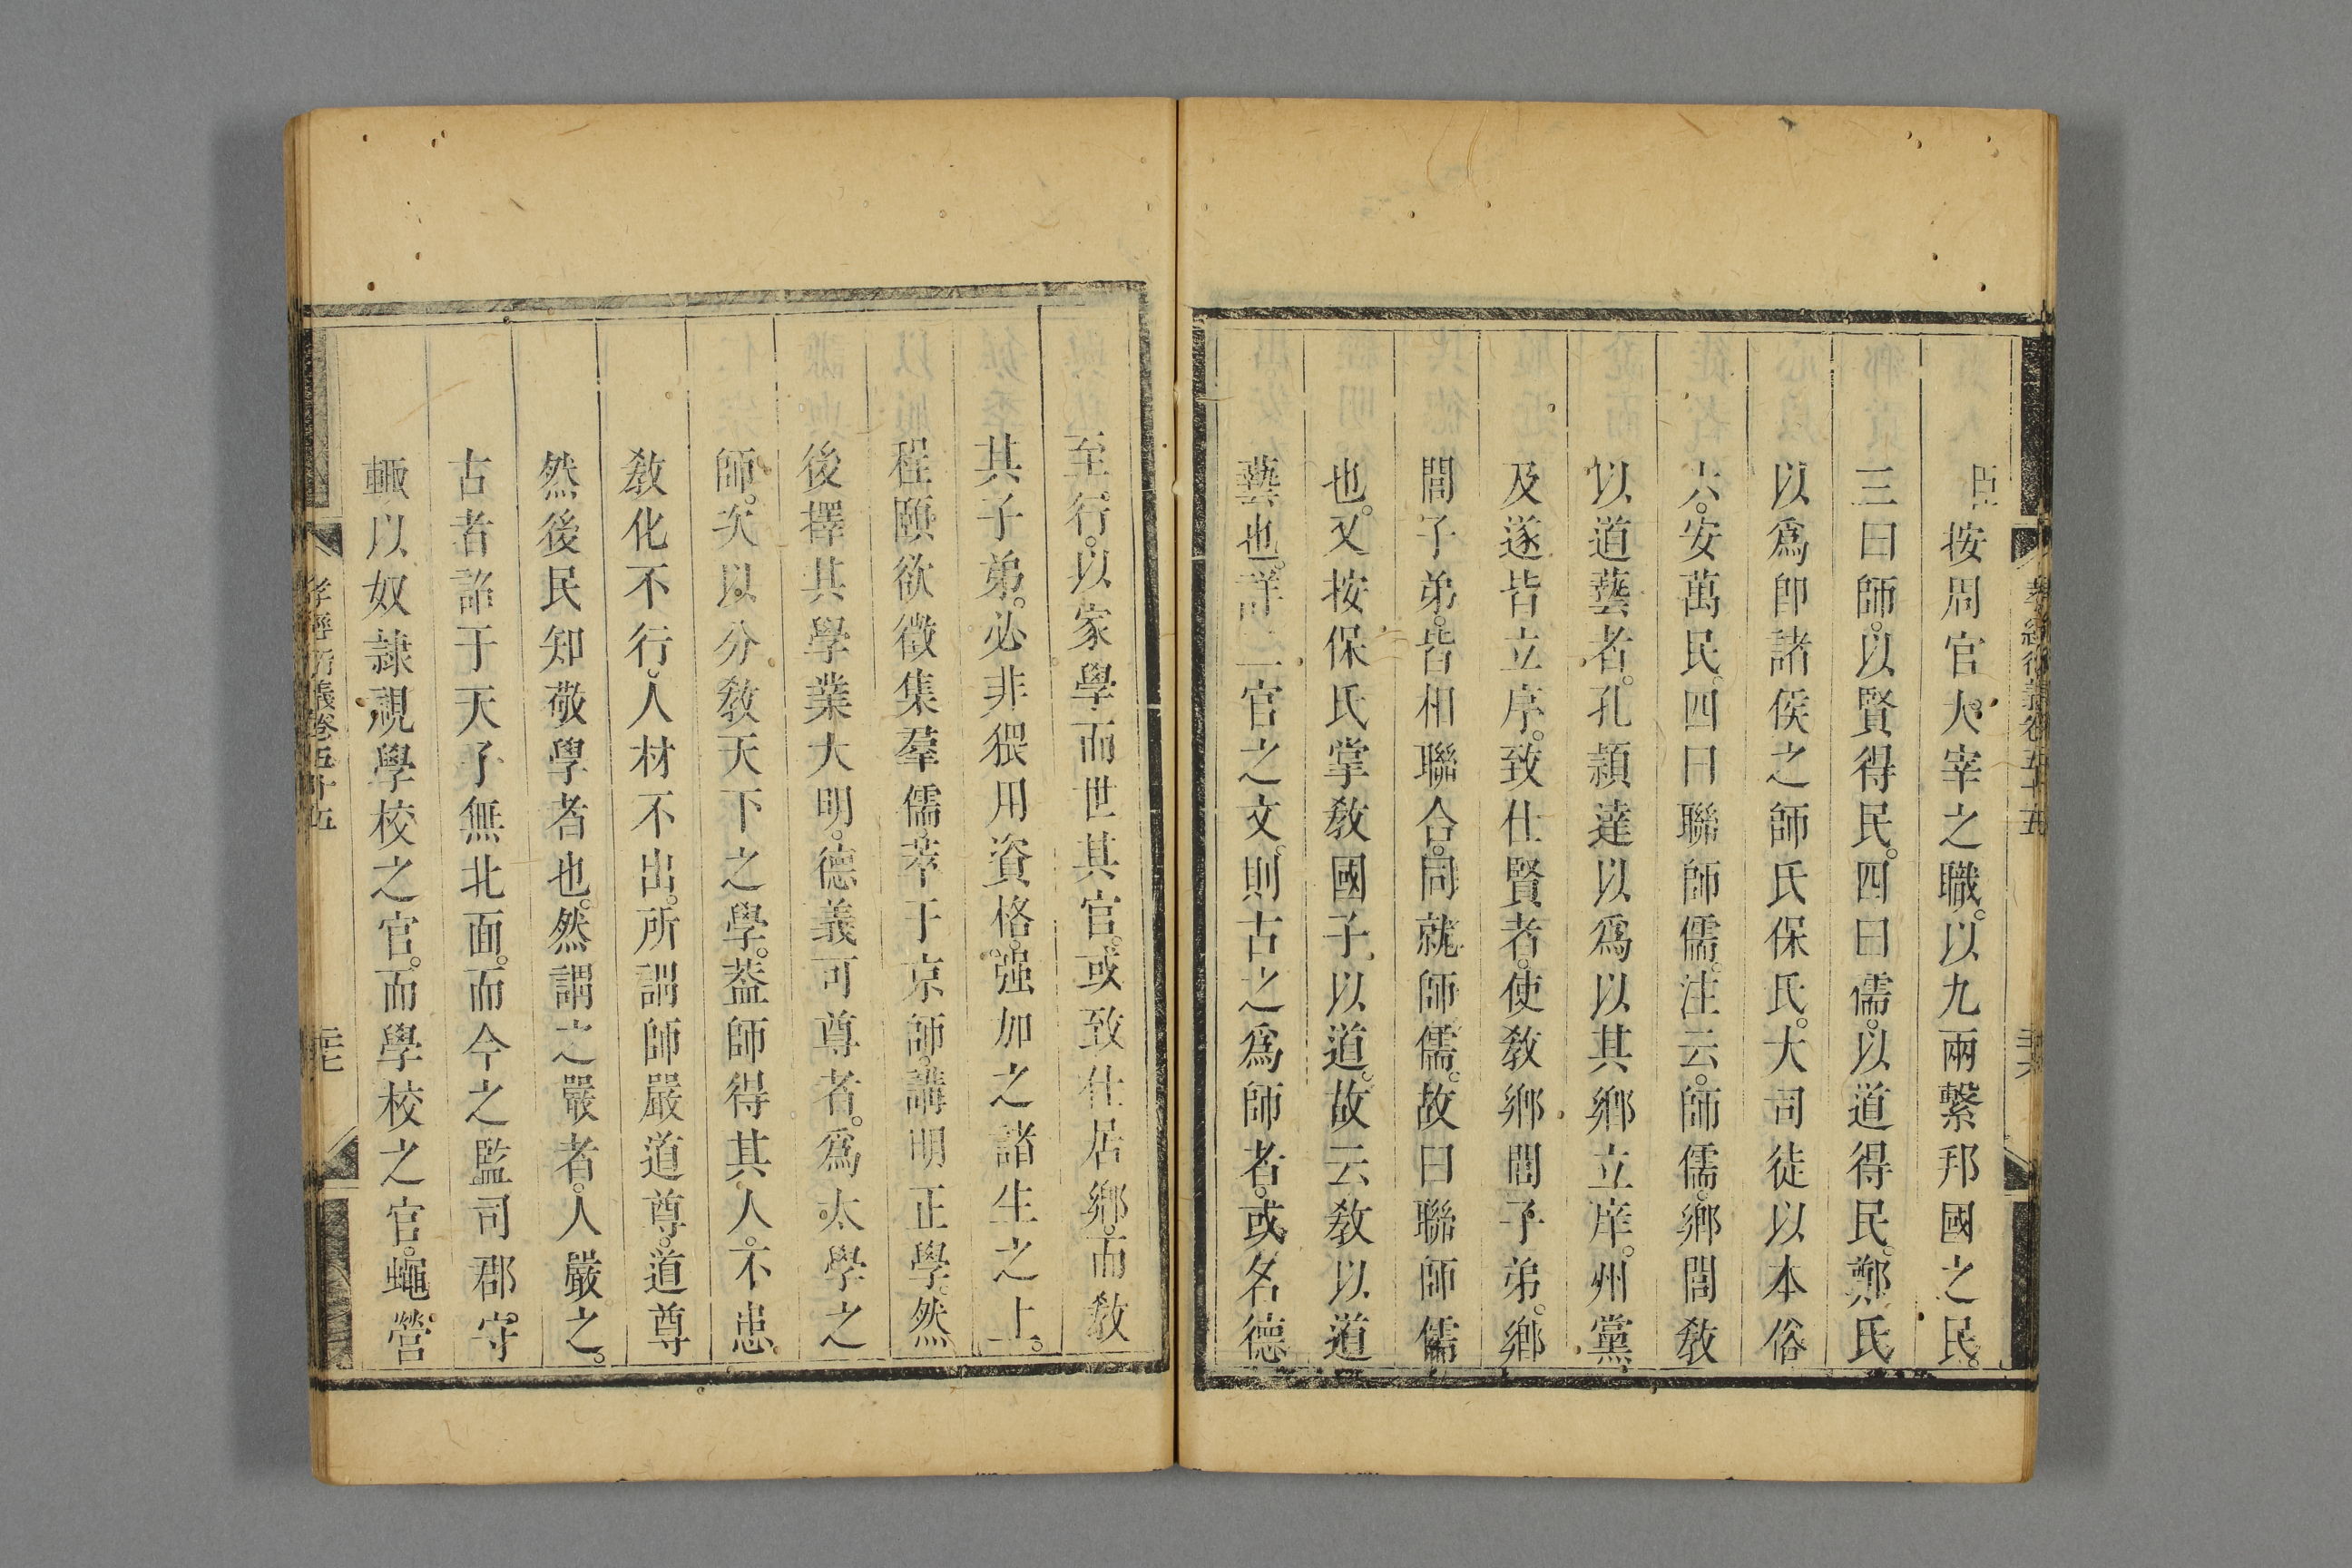 孝經衍義卷五十五
臣按周官大宰之職。以九兩繫邦國之民。
三曰師。以賢得民。四曰儒。以道得民。鄭氏
以爲卽諸侯之師氏保氏。大司徒以本俗
六。安萬民。四曰聯師儒。注云。師儒。鄉閭敎
以道藝者。孔頴達以爲以其鄉立庠。州黨
及遂皆立序。致仕賢者。使敎鄉閭子弟。鄉
閭子弟。皆相聯合。同就師儒。故曰聯師儒
也。又按保氏掌敎國子以道。故云敎以道
藝也。詳二官之文。則古之爲師者。或名德
至行。以家學而世其官。或致仕居鄉。而敎
其子弟。必非猥用資格。强加之諸生之上。
程頤欲徵集羣儒。萃于京師。講明正學。然
後擇其學業大明。德義可尊者。爲太學之
師。次以分敎天下之學。葢師得其人。不患
敎化不行。人材不出。所謂師嚴道尊。道尊
然後民知敬學者也。然謂之嚴者。人嚴之。
古者詔于天子無北面。而今之監司郡守
輙以奴隷視學校之官。而學校之官。蠅營
孝經衍義卷五十五